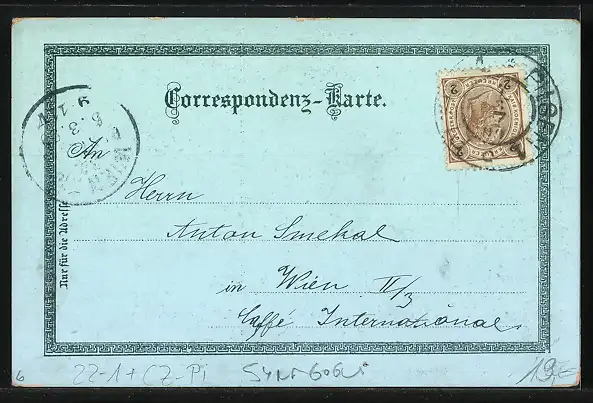 Correspondenz-Karte.
2 2
PILSEN
An
WIEN
Herrn
Anton Smekal
in Wien II/3
Caffé International
Nur für die Adresse
6
22-1+CZ-Pi
SYNAGOGE
19,-€